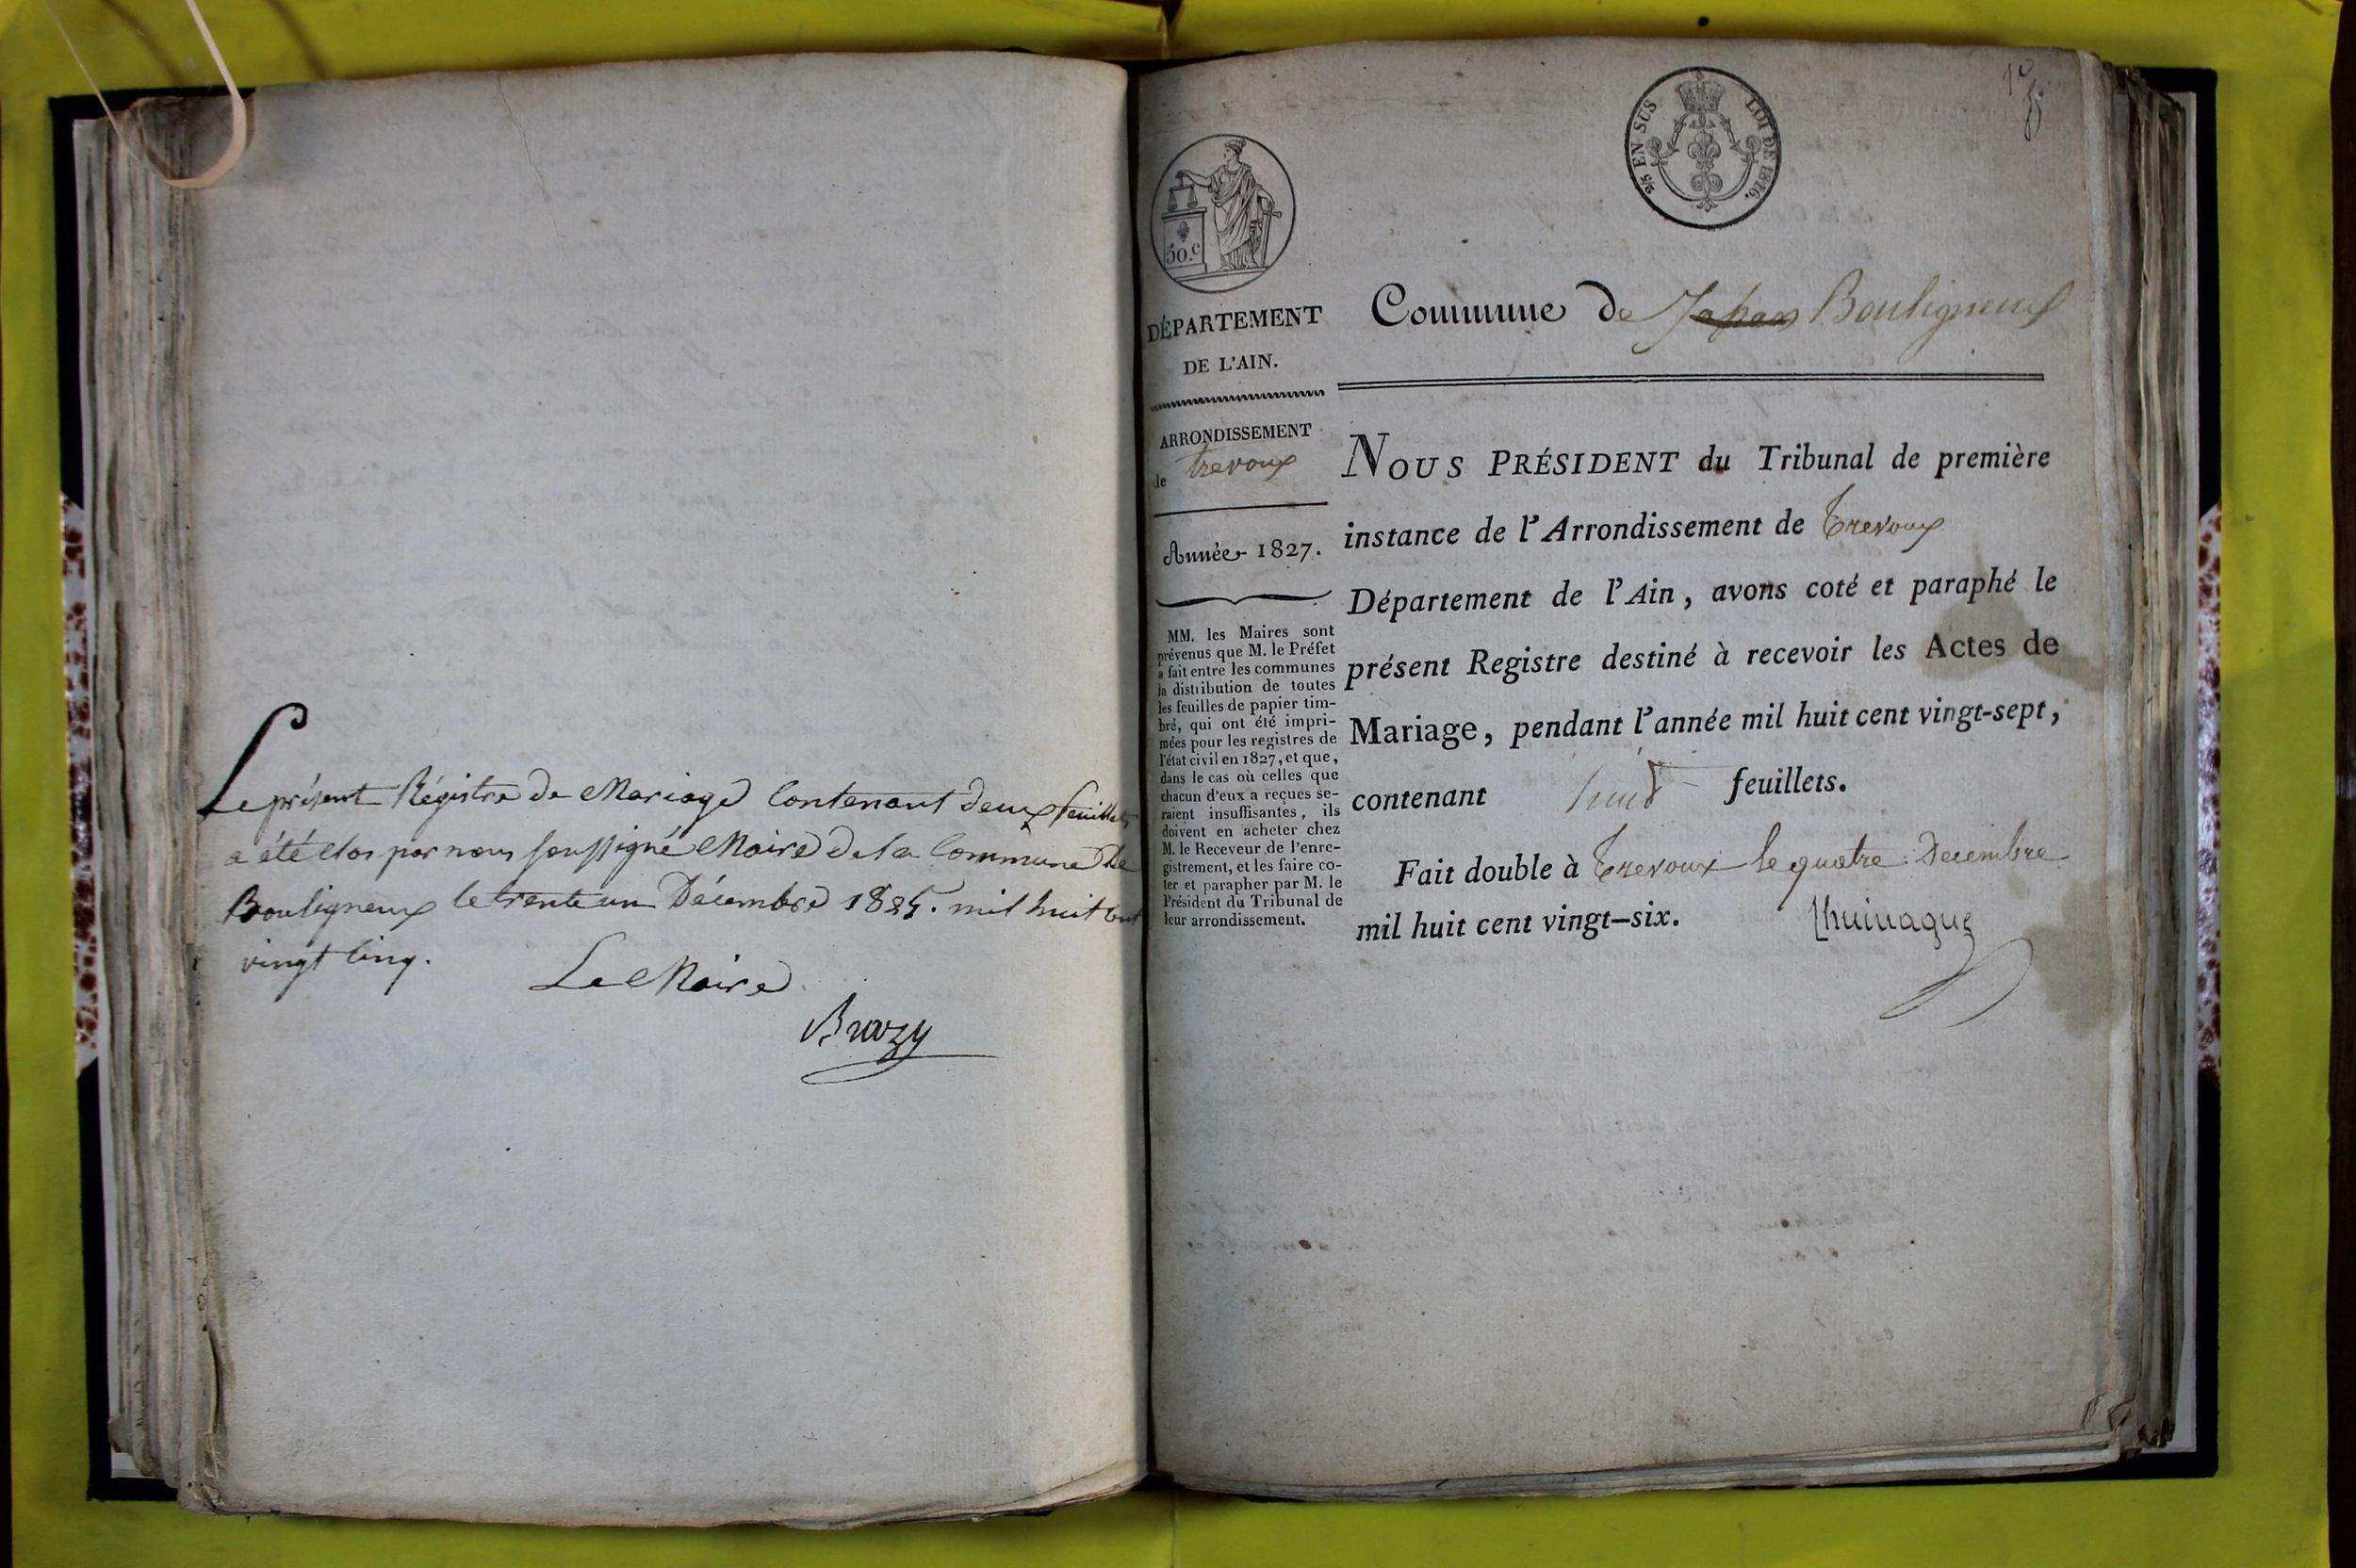 Le présent Régistre de Mariage Contenant deux feuillets
a été clos par nous soussigné Maire de la Commune de
Bouligneux le trente un Décembre 1825. mil huit cent
vingt cinq.
Le Maire
Brazy
50.c
2/5 EN SUS LOI DE 1816.
DÉPARTEMENT
DE L'AIN.
ARRONDISSEMENT
de trevoux
Année 1827.
MM. les Maires sont
prévenus que M. le Préfet
a fait entre les communes
la distribution de toutes
les feuilles de papier tim-
bré, qui ont été impri-
mées pour les registres de
l'état civil en 1827, et que,
dans le cas où celles que
chacun d'eux a reçues se-
raient insuffisantes, ils
doivent en acheter chez
M. le Receveur de l'enre-
gistrement, et les faire co-
ter et parapher par M. le
Président du Tribunal de
leur arrondissement.
Commune de Japan Bouligneux
NOUS PRÉSIDENT du Tribunal de première
instance de l'Arrondissement de Trevoux
Département de l'Ain, avons coté et paraphé le
présent Registre destiné à recevoir les Actes de
Mariage, pendant l'année mil huit cent vingt-sept,
contenant huit feuillets.
Fait double à Trevoux le quatre Decembre
mil huit cent vingt-six.